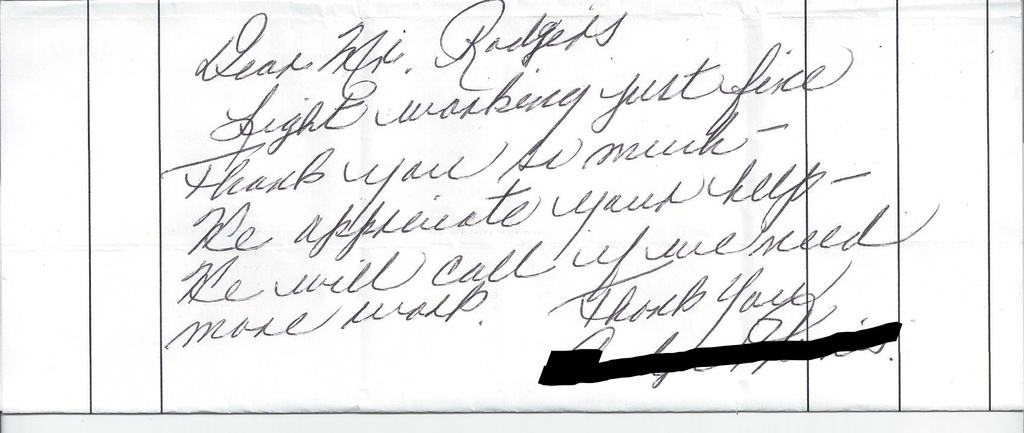 Dear Mr. Rodgers
Light working just fine
Thank you so much —
We appriciate your help —
We will call if we need
more work. Thank You